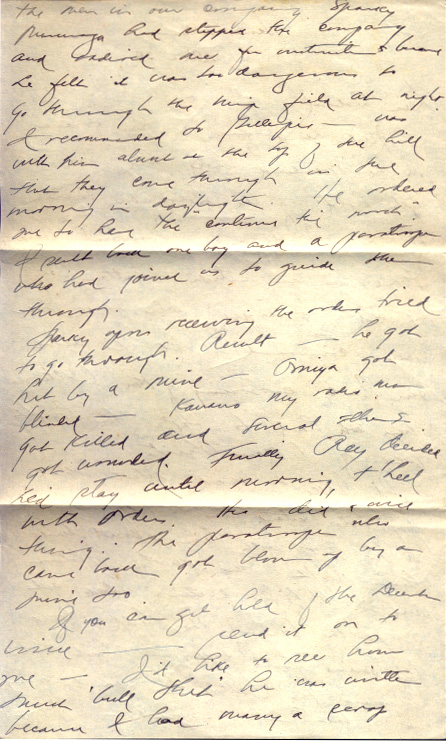 the men in our company. Sparky
had stopped the company
and ordered me for instructions because
he felt it was too dangerous to
go through the mine field at night
I recommended to Gillespie — was
with him alone at the top of the hill
that they come through in the
morning in daylight. He ordered
me to have the "continue the march".
I sent back one boy and a paratrooper
who had joined us to guide them
through.
Sparky upon receiving the orders tried
to go through. Result — he got
hit by a mine — Omiya got
blinded — Kawano my radio man
got killed and several others
got wounded. Finally Ray decided
he'd stay until morning, t'hell
with orders. He did a wise
thing. The paratrooper who
came back got blown up by a
mine too
If you can get hold of the December
issue — send it on to
me — I'd like to see how
much 'bull shit' he was written
because I had many a scrap